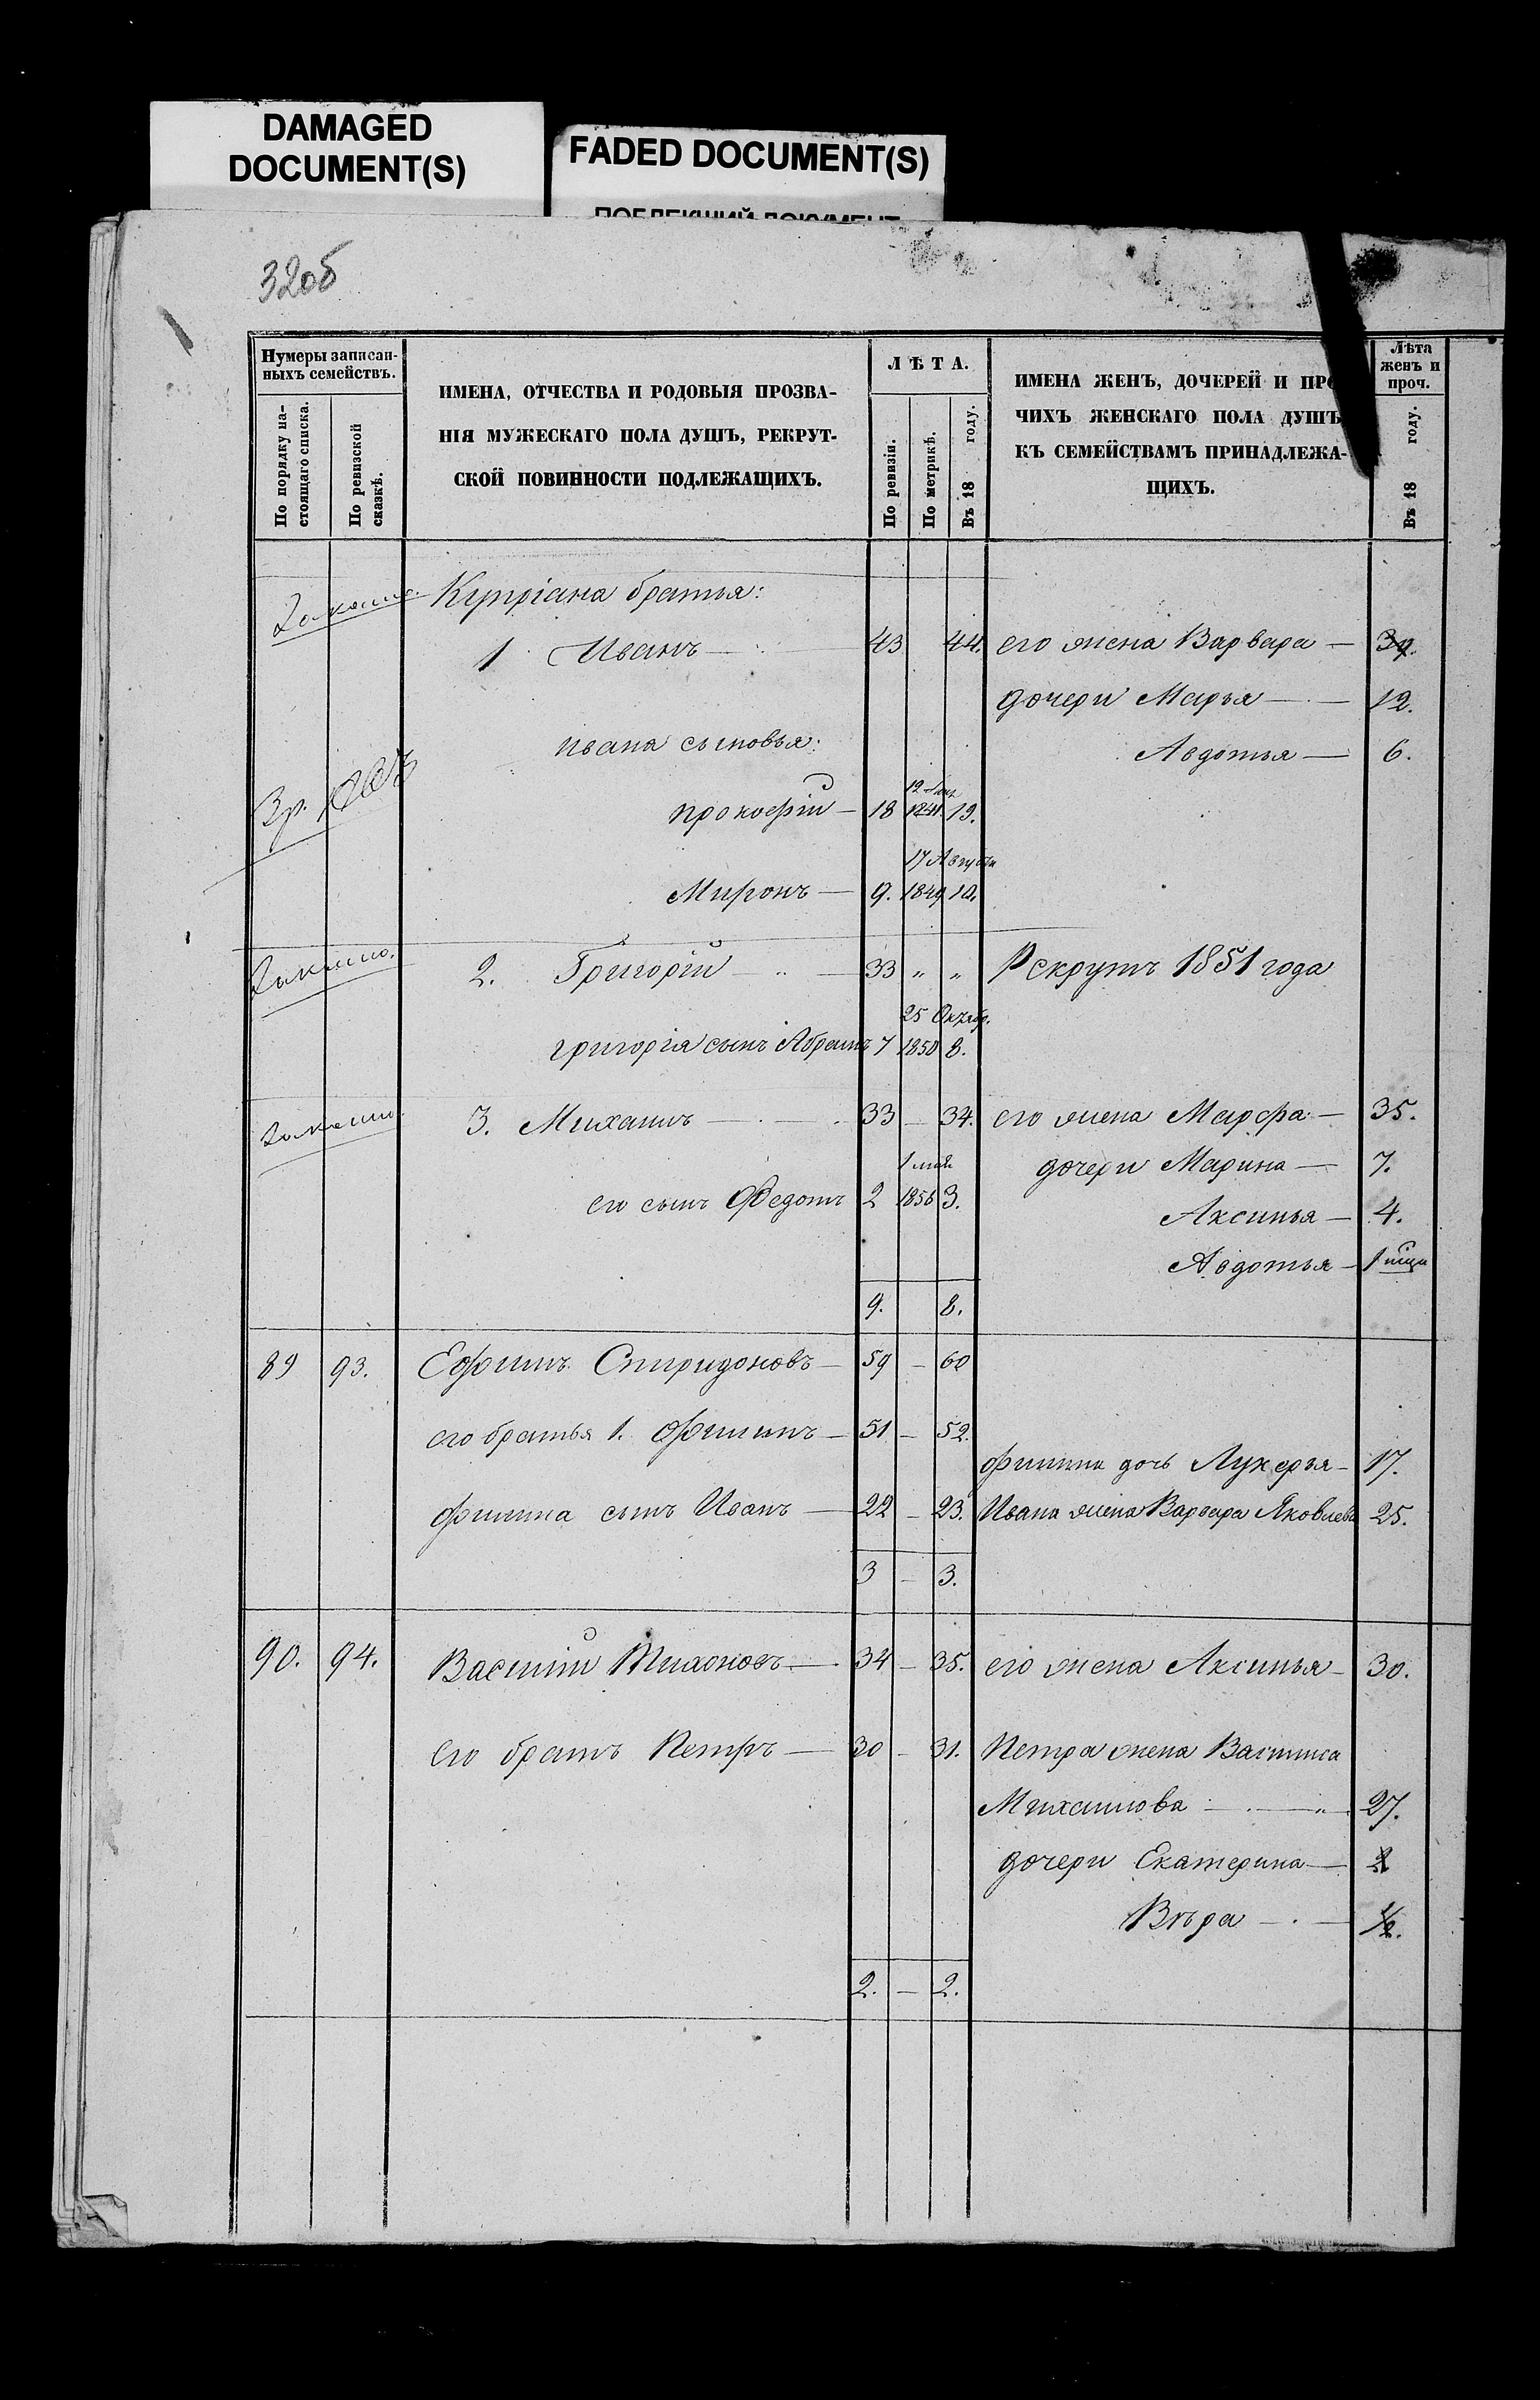 DAMAGED
DOCUMENT(S)
FADED DOCUMENT(S)
32об
Нумеры записан-
ныхъ семействъ.
По порядку на-
стоящаго списка.
По ревизской
сказкѣ.
ИМЕНА, ОТЧЕСТВА И РОДОВЫЯ ПРОЗВА-
НІЯ МУЖЕСКАГО ПОЛА ДУШЪ, РЕКРУТ-
СКОЙ ПОВИННОСТИ ПОДЛЕЖАЩИХЪ.
ЛѢТА.
По ревизіи.
По метрикѣ.
Въ 18 году.
ИМЕНА ЖЕНЪ, ДОЧЕРЕЙ И ПРО
ЧИХЪ ЖЕНСКАГО ПОЛА ДУШЪ
КЪ СЕМЕЙСТВАМЪ ПРИНАДЛЕЖА-
ЩИХЪ.
Лѣта
женъ и
проч.
Въ 18 году.
Купріяна братья:
1 Иванъ — 43 44. его жена Варвара — 39.
дочери Марья — 12.
ивана сыновья:
Авдотья — 6.
прокофій — 18 19.
17 Августа
Миронъ — 9. 1849 10.
2. Григорій — 33 „ „ Рекрутъ 1851 года
25 Октябр.
григорія сынъ Абрамъ 7 1850 8.
3. Михаилъ — 33 — 34. его жена Марфа — 35.
1 мая
дочери Марина — 7.
его сынъ Федотъ 2 1856 3.
Аксинья — 4.
Авдотья — 1
9. 8.
89 93. Ефимъ Спиридоновъ — 59 — 60
его братья 1. Филипъ — 51 — 52.
филипа дочь Лукерья — 17.
филипа сынъ Иванъ — 22 — 23. Ивана жена Варвара Яковлева 25.
3 — 3.
90. 94. Василій Тихоновъ — 34 — 35. его жена Аксинья — 30.
Его братъ Петръ — 30 — 31. Петра жена Василиса
Михаилова — 27.
дочери Екатерина — 2
Вѣра — ½.
2. — 2.